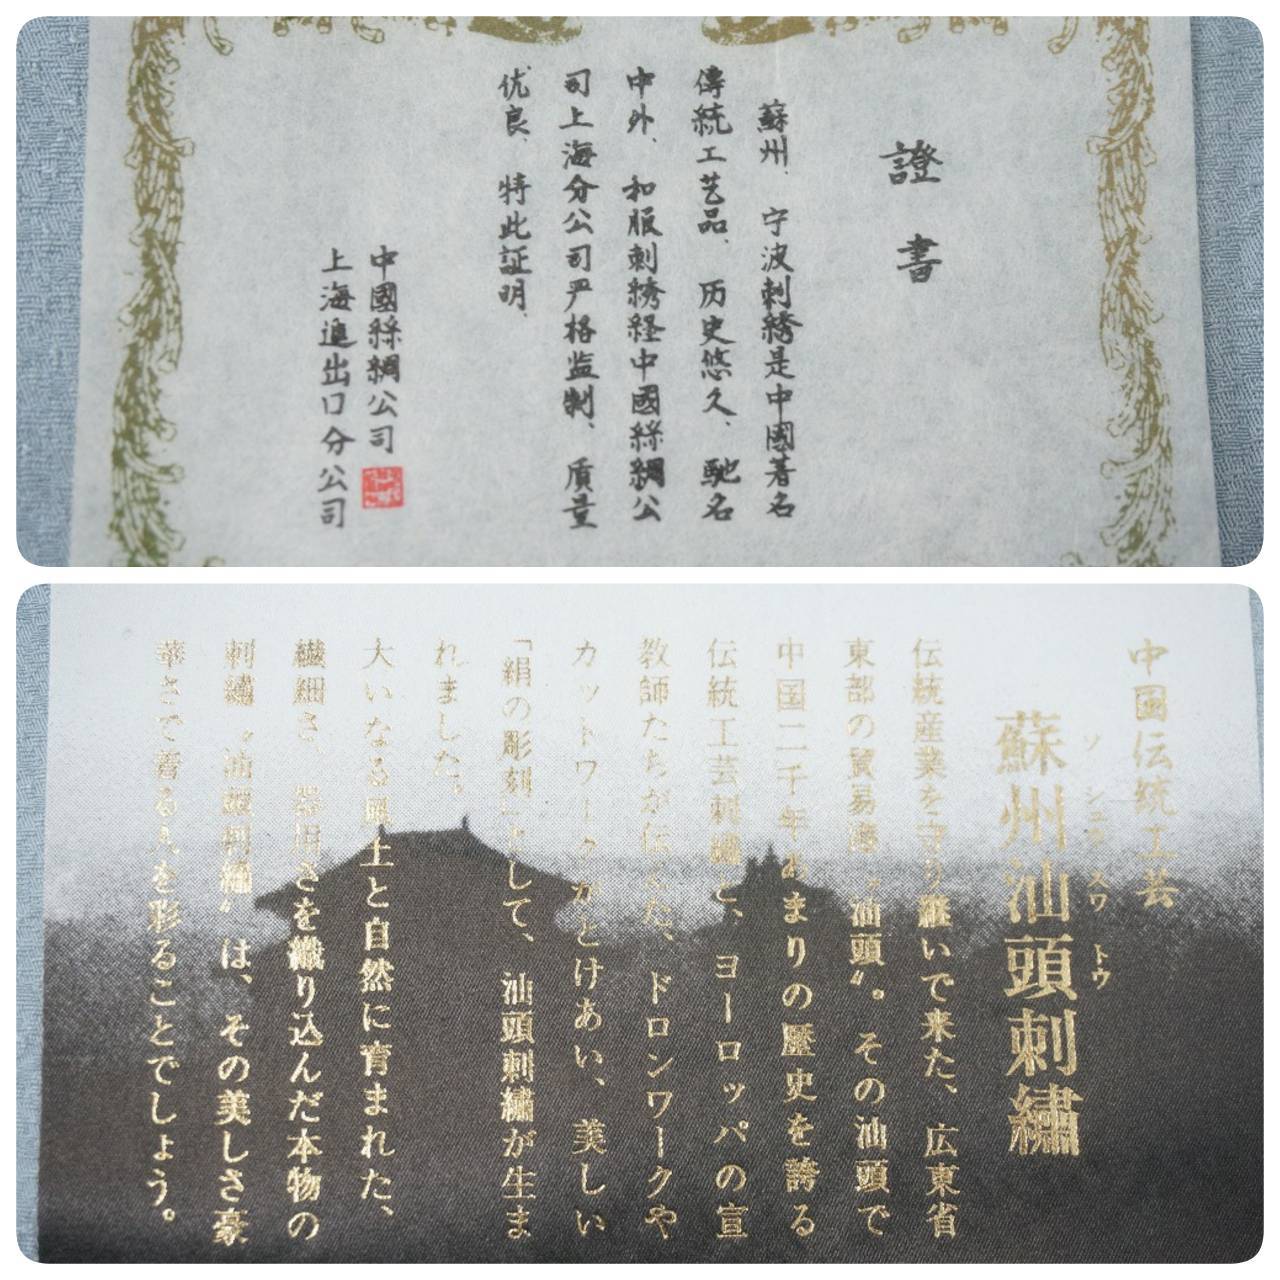 證書
蘇州、宁波刺綉是中國著名
傳統工艺品、历史悠久、馳名
中外、和服刺綉経中國絲綢公
司上海分公司严格监制、质量
优良、特此証明、
中國絲綢公司
上海進出口分公司
中国伝統工芸
蘇州汕頭刺繡
ソシュウスワトウ
伝統産業を守り継いで来た、広東省
東部の貿易港〝汕頭〟。その汕頭で
中国二千年あまりの歴史を誇る
伝統工芸刺繡と、ヨーロッパの宣
教師たちが伝えた、ドロンワークや
カットワークがとけあい、美しい
「絹の彫刻」として、汕頭刺繡が生ま
れました。
大いなる風土と自然に育まれた、
繊細さ、器用さを織り込んだ本物の
刺繡〝汕頭刺繡〟は、その美しさ豪
華さで着る人を彩ることでしょう。